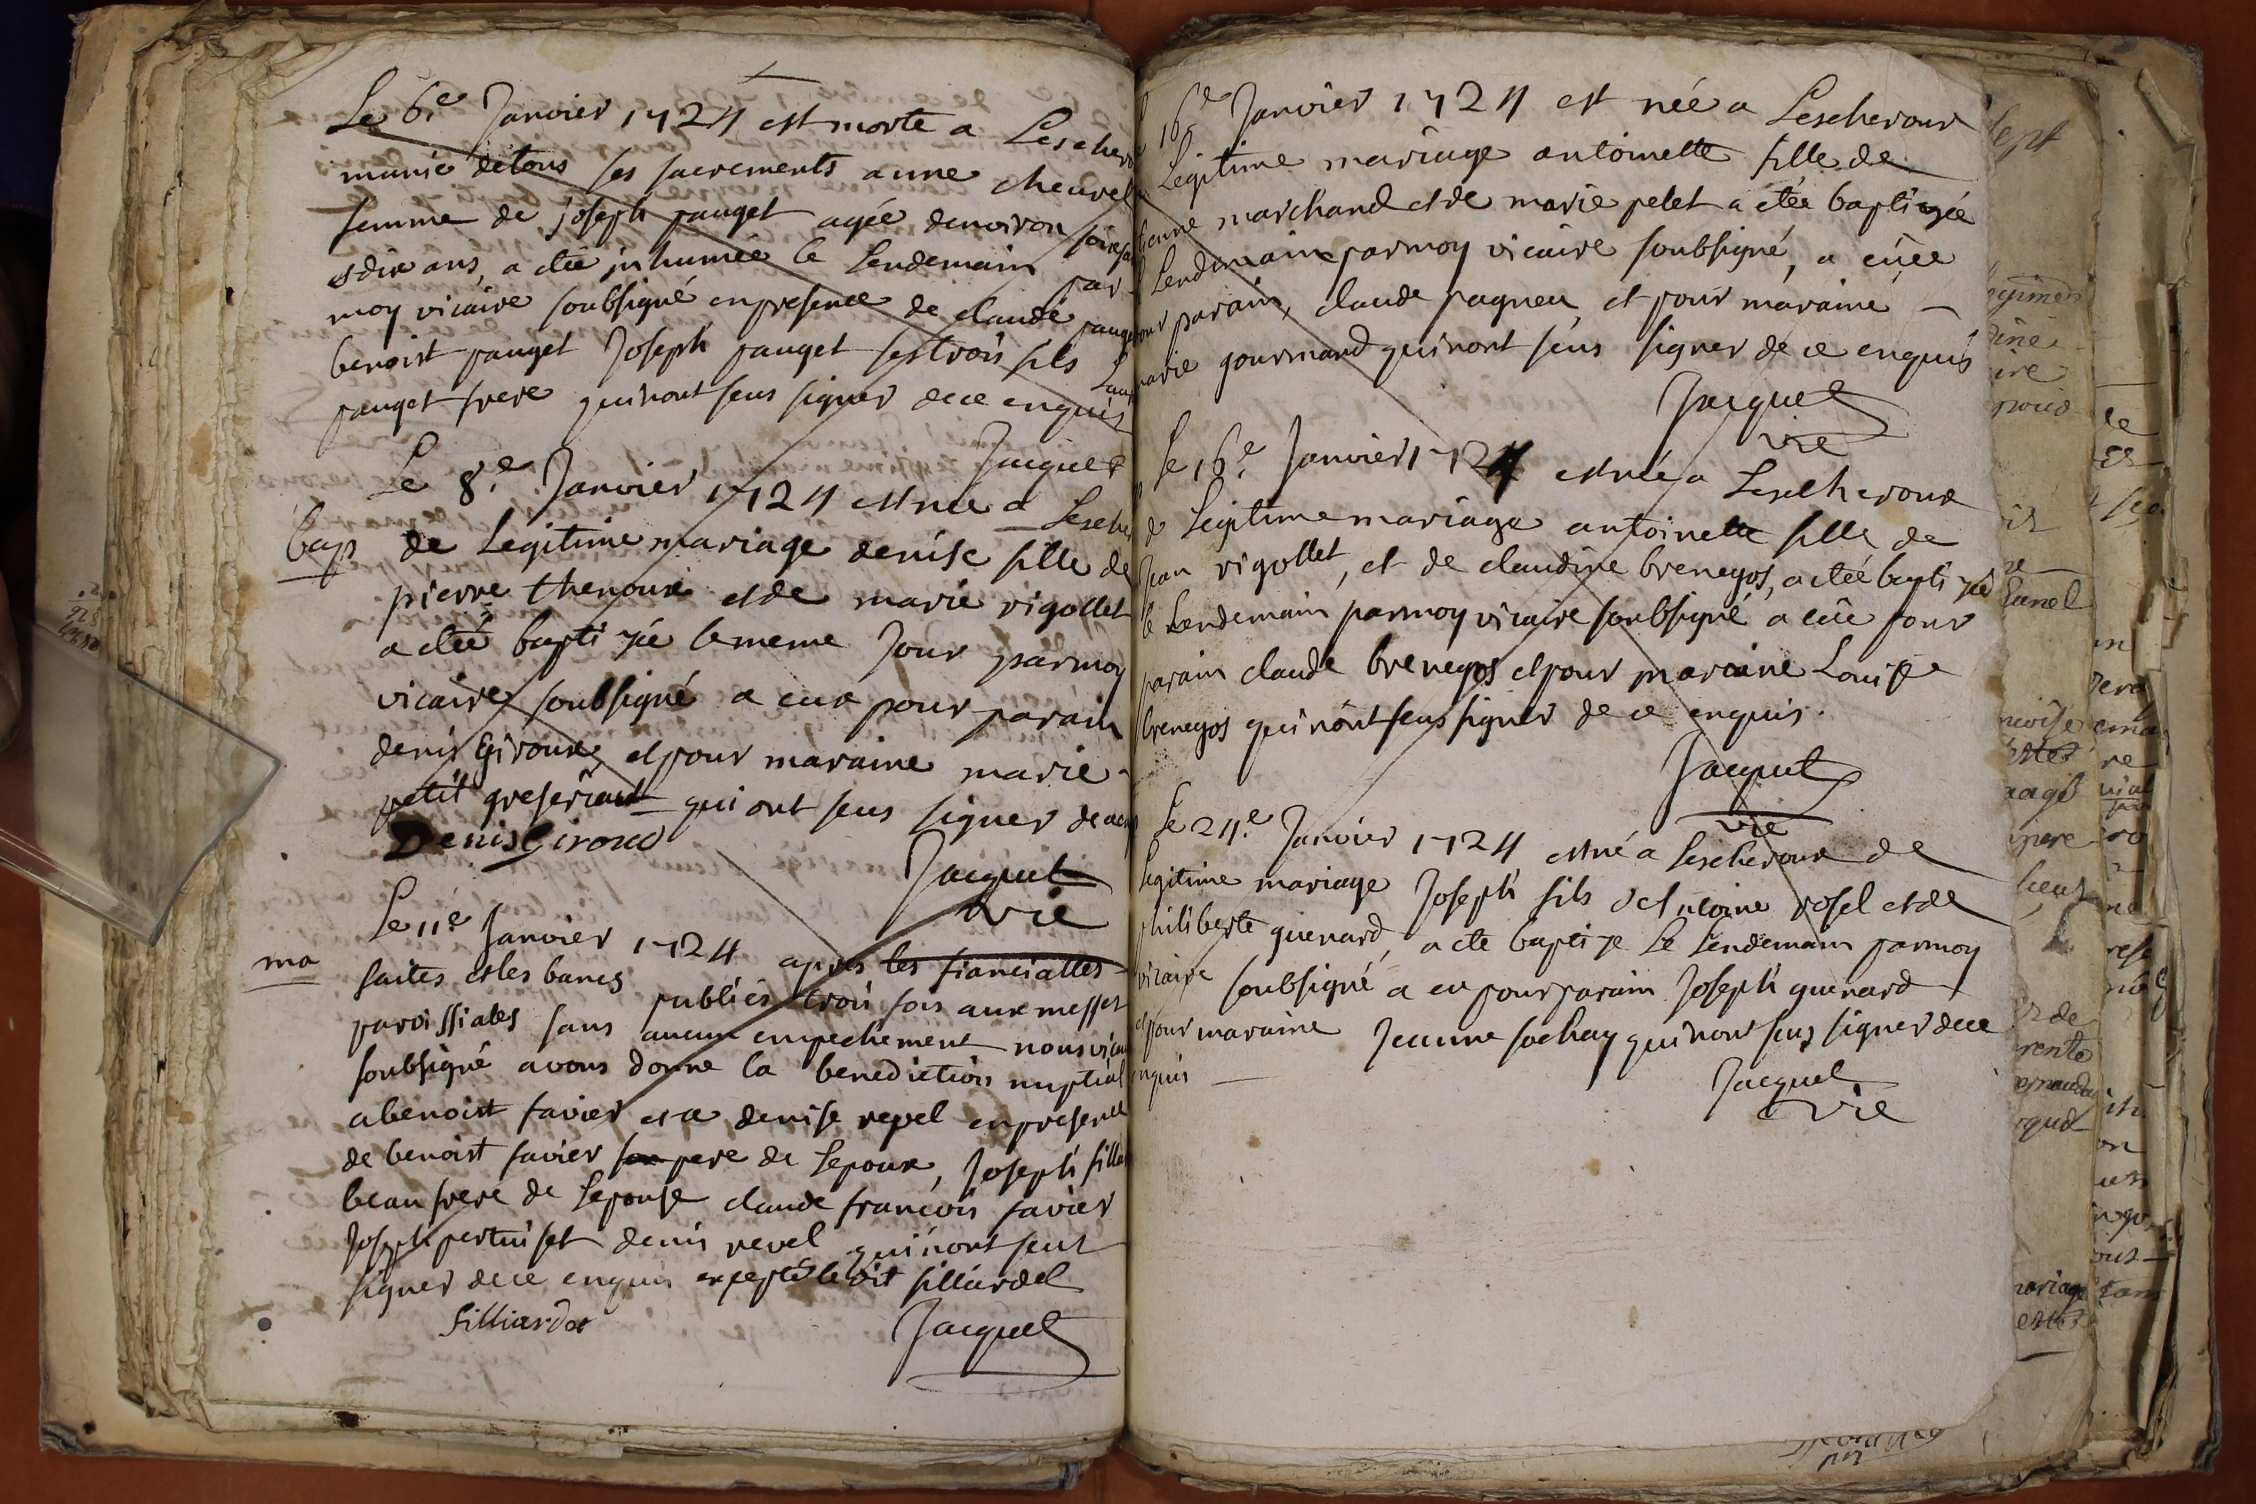 Le 6.e Janvier 1724 est morte a Leschero
munie detous ses sacrements anne cheurel
femme de joseph pauget agée denviron soixa
etdix ans, a etée jnhumée le Lendemain par
moy vicaire soubsigné enpresence de claude pauget
benoist pauget Joseph pauget sestrois fils
pauget frere quinont seus signer dece enquis
Jacquet
Le 8.e Janvier 1724 estnee a Lesche
bap
de Legitime mariage denise fille de
pierre thenoux etde marie rigollet
a etée baptizée lememe Jour parmoy
vicaire soubsigné a eue pour parain
denis Giroux, etpour maraine marie
petit qui ont seus signer de
Denis Giroud
Jacquet
vic
Le 11.e Janvier 1724 apres les fiancialles
ma
faites etles bancs publiés trois fois aux messes
paroissiales sans aucun empechement nous vicai
soubsigné avons donne la benediction nuptial
abenoist favier et a denise revel enpresence
de benoist favier son pere de Lepoux, Joseph filla
beaufrere de Lepouse claude françois favier
Joseph pertuiset denis revel quinont seut
signer dece enquis excepté ledit filliardet
filliardet
Jacquet
16.e Janvier 1724 est née a Lescheroux
Legitime mariage antoinette fille de
tienne marchand et de marie pelet a etée baptizée
Lendemain parmoy vicaire soubsigné, a eüe
pour parain, claude pagneu, et pour maraine
marie gourmand quinont seus signer de ce enquis
Jacquet
vic
Le 16.e Janvier 1724 estnée a Lescheroux
de Legitime mariage antoinette fille de
Jean rigollet, et de claudine brenegos, a etée baptizée
le Lendemain parmoy vicaire soubsigné a eüe pour
parain claude brenegos etpour maraine Louise
brenegos quinont seus signer de ce enquis.
Jacquet
vic
Le 24.e Janvier 1724 estné a Lescheroux de
Legitime mariage Joseph fils dantoine rosel etde
philiberte guenard, a ete baptize Le Lendemain parmoy
vicaire soubsigné a eu pour parain Joseph guenard
etpour maraine Jeanne sochay quinont seus signer dece
enquis
Jacquet
vic